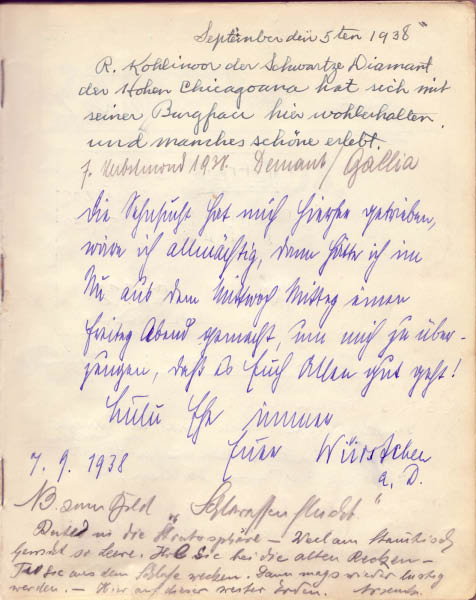 September den 5ten 1938
R. Kohlinoor der Schwartze Diamant
der Hohen Chicagoana hat sich mit
seiner Burgfrau hier wohlerhalten
und manches schöne erlebt.
7. 1938. Demant / Gallia
Die Sehnsucht hat mich hierher getrieben,
wäre ich allmächtig, dann hätte ich im
Nu aus dem Mittwoch Mittag einen
Freitag Abend gemacht, um mich zu über-
zeugen, daß es Euch Allen gut geht!
Lulu Ehe immer
Euer Würstchen
a. D.
7. 9. 1938
NB. zum Bild „Schlaraffenflucht"
die Stratosphäre — Stammtisch
so leere. Sie bei die alten Recken —
Sie aus dem Schlafe wecken. Dann mags wieder lustig
werden. — Hier auf dieser weiter Erden.